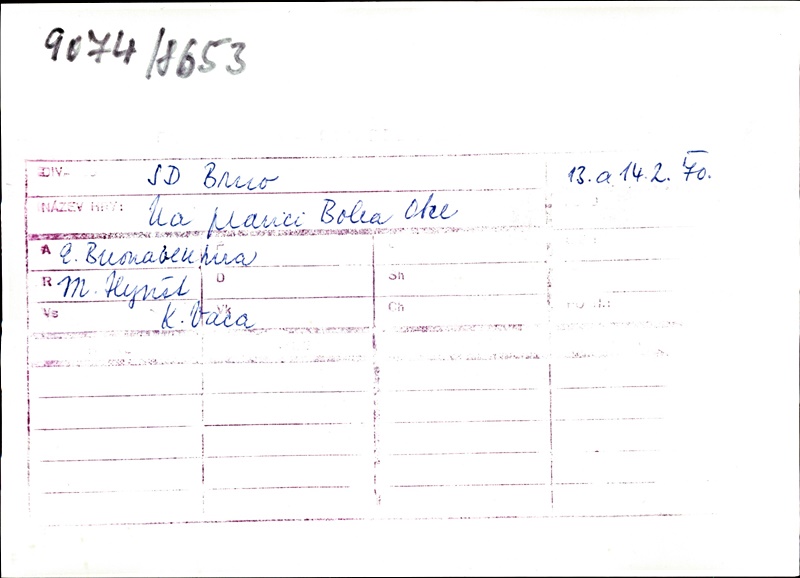 9074/8653
DIV. SD Brno 13. a 14. 2. 70.
NÁZEV HRY: Na planici Bolea Oke
A E. Buonaventura
R M. Hynšt D Sh
Vs K. Váca Ch